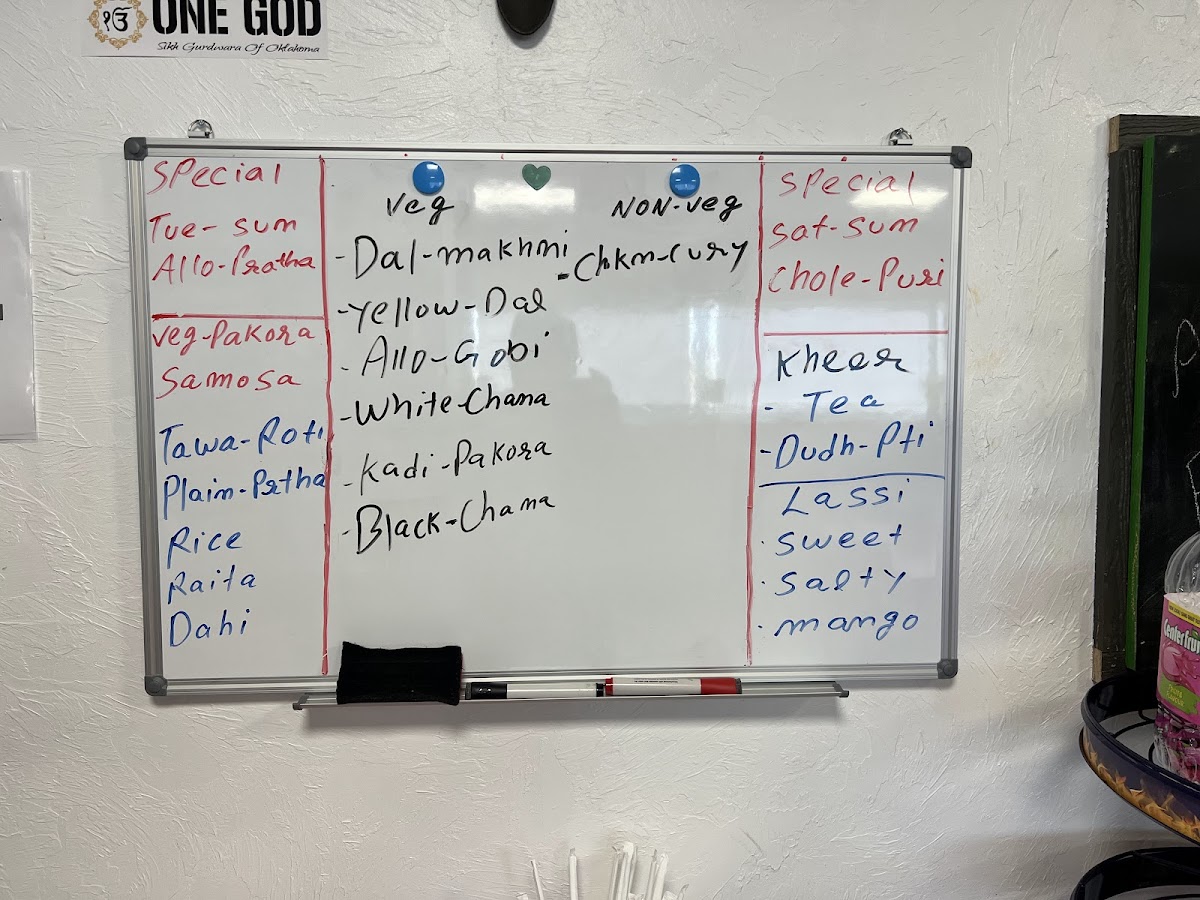 ੴ ONE GOD
Sikh Gurdwara Of Oklahoma
Special
Tue- sum
Allo-Pratha
veg-Pakora
Samosa
Tawa-Roti
Plain-Prtha
Rice
Raita
Dahi
veg
- Dal-makhni
-Yellow-Dal
- Allo-Gobi
-White-Chana
- Kadi-Pakora
- Black-Chana
NON-veg
- Chkn-Cury
Special
Sat-Sum
Chole-Puri
Kheer
- Tea
-Dudh-Pti
Lassi
· Sweet
· Salty
· mango
Centerfru